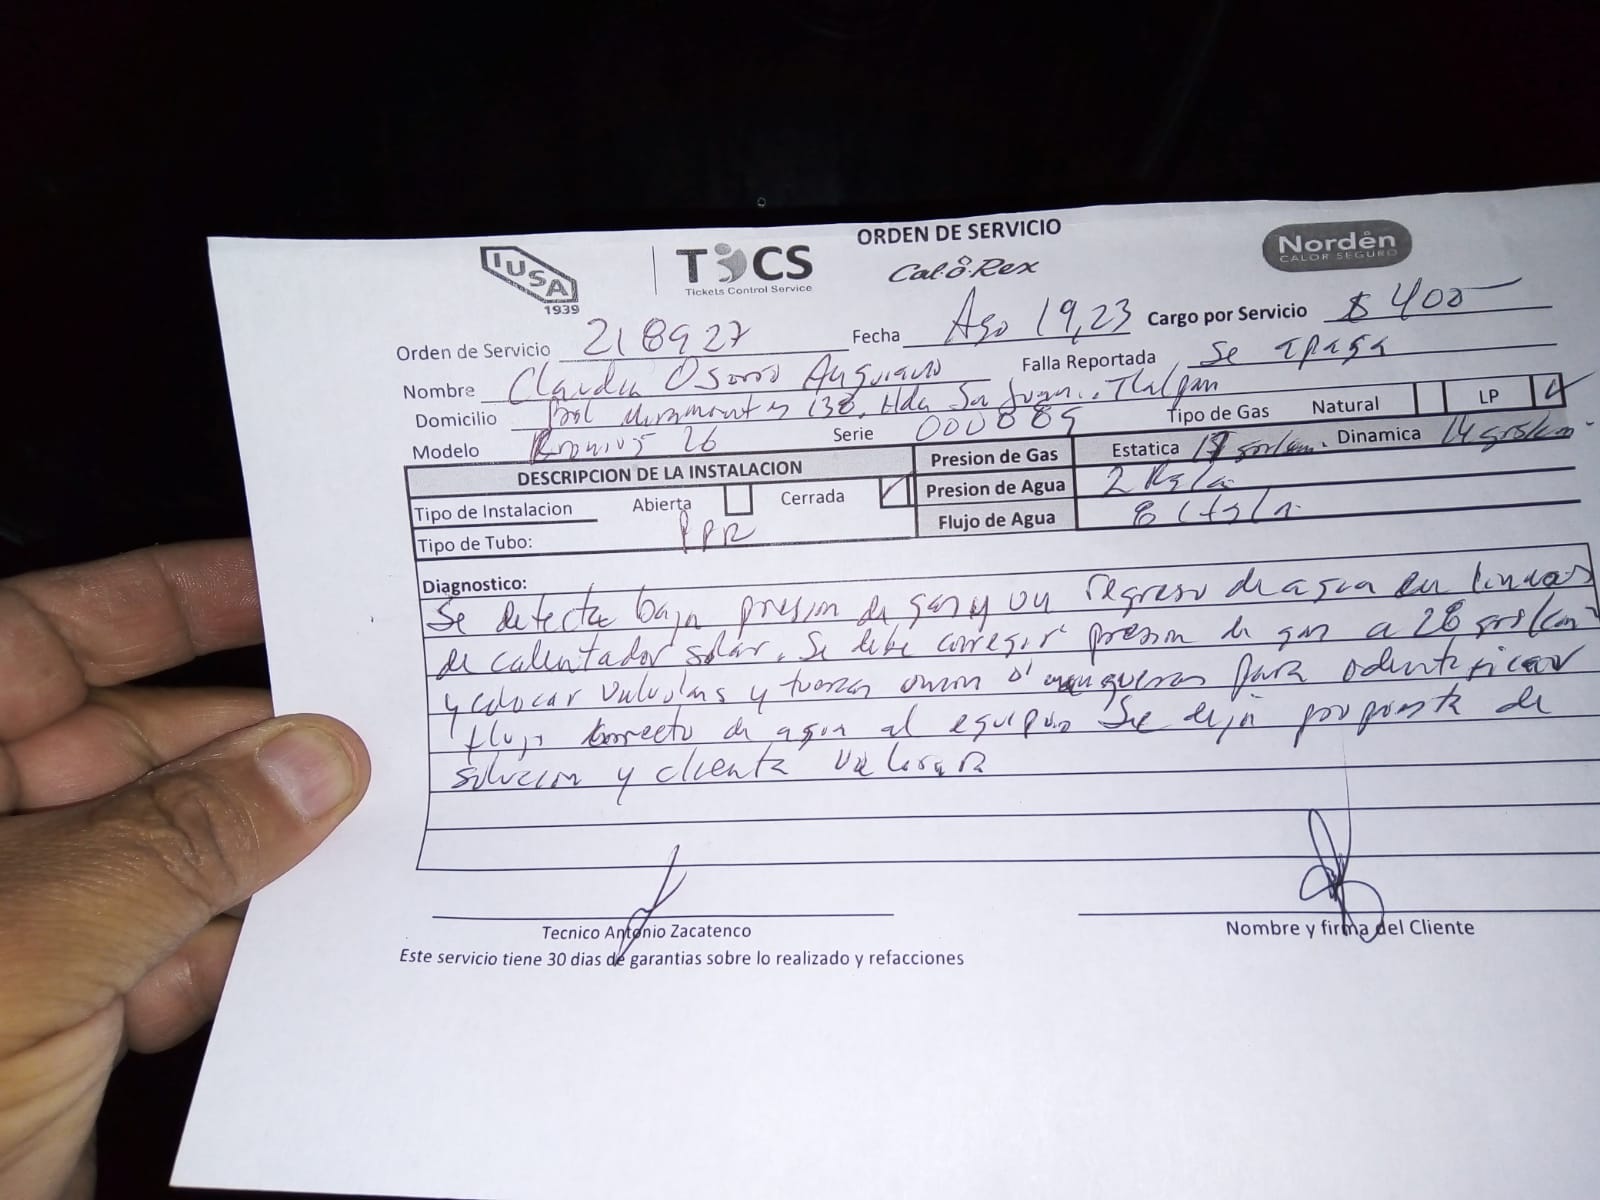 ORDEN DE SERVICIO
IUSA
1939
TCS
Tickets Control Service
Cal-O-Rex
Nordên
CALOR SEGURO
Orden de Servicio 218927 Fecha Ago 19,23 Cargo por Servicio $ 400
Nombre Claudia Osorio Anguiano Falla Reportada Se apaga
Domicilio Bol Miramontes 138, Hda Sn Juan, Tlalpan
Modelo 26 Serie 000889 Tipo de Gas Natural LP
DESCRIPCION DE LA INSTALACION Presion de Gas Estatica 17 grs/cm Dinamica 14 grs/cm
Tipo de Instalacion Abierta Cerrada Presion de Agua 2
Tipo de Tubo: PPR Flujo de Agua 8
Diagnostico:
Se detecta baja presion de gas y un regreso de agua en lineas
de calentador solar. Se debe corregir presion de gas a 28 grs/cm
y colocar valvulas y tuercas union o mangueras para
flujo correcto de agua al equipo. Se deja propuesta de
solucion y clienta valorara
Tecnico Antonio Zacatenco
Nombre y firma del Cliente
Este servicio tiene 30 dias de garantias sobre lo realizado y refacciones